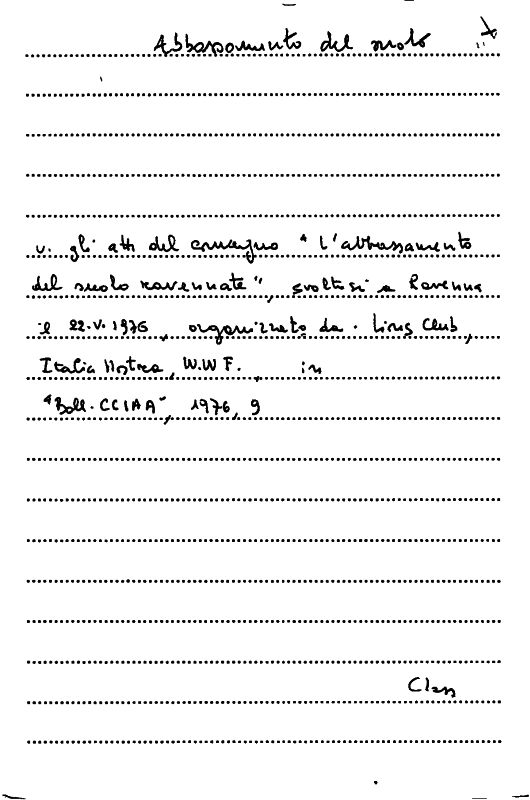 Abbassamento del suolo
v. gli atti del convegno "L'abbassamento
del suolo ravennate", svoltosi a Ravenna
il 22.V.1976, organizzato da. Lions Club,
Italia Nostra, W.W.F., in
"Boll. CCIAA", 1976, 9